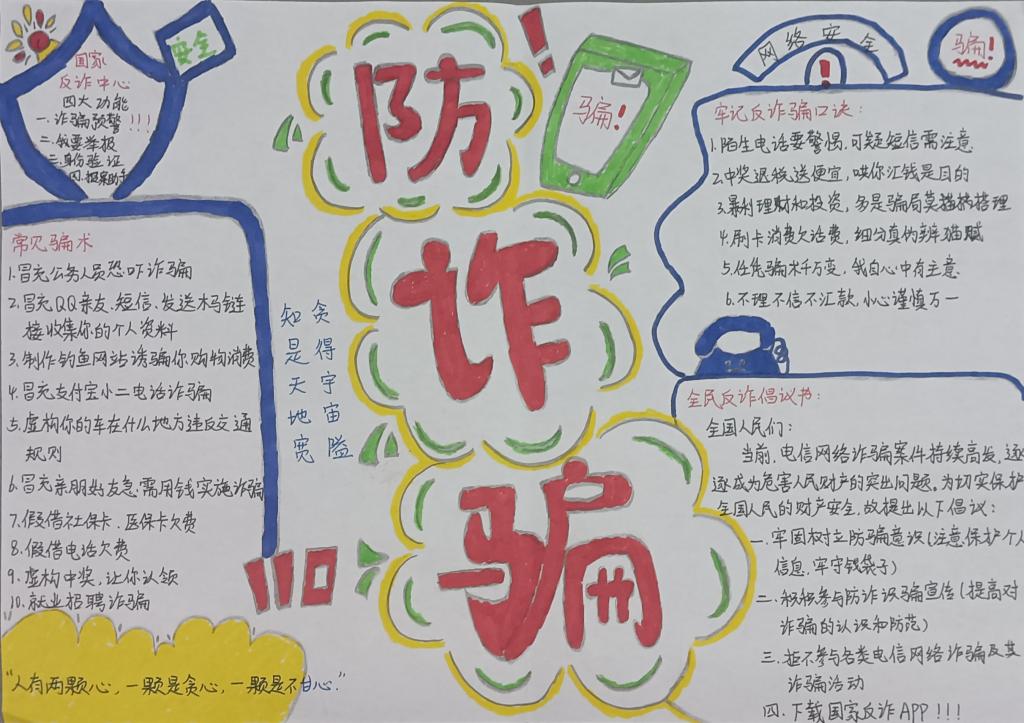 国家
反诈中心
四大功能
一.诈骗预警!!!
二.我要举报
三.身份验证
四.报案助手
安全
常见骗术
1.冒充公务人员恐吓诈骗
2.冒充QQ亲友、短信、发送木马链
接收集你的个人资料
3.制作钓鱼网站诱骗你购物消费
4.冒充支付宝小二电话诈骗
5.虚构你的车在什么地方违反交通
规则
6.冒充亲朋好友急需用钱实施诈骗
7.假借社保卡、医保卡欠费
8.假借电话欠费
9.虚构中奖,让你认领
10.就业招聘诈骗
"人有两颗心,一颗是贪心,一颗是不甘心."
防
诈
骗
!
骗!
贪得宇宙隘
知是天地宽
110
网络安全
!
骗!
牢记反诈骗口诀:
1.陌生电话要警惕,可疑短信需注意
2.中奖退税送便宜,哄你汇钱是目的
3.暴利理财和投资,多是骗局莫搭理
4.刷卡消费欠话费,细分真伪辨猫腻
5.任凭骗术千万变,我自心中有主意
6.不理不信不汇款,小心谨慎万一
全民反诈倡议书:
全国人民们:
当前,电信网络诈骗案件持续高发,逐
逐成为危害人民财产的突出问题,为切实保护
全国人民的财产安全,故提出以下倡议:
一.牢固树立防骗意识(注意保护个人
信息,牢守钱袋子)
二.积极参与防诈识骗宣传(提高对
诈骗的认识和防范)
三.拒不参与各类电信网络诈骗及其
诈骗活动
四.下载国家反诈APP!!!